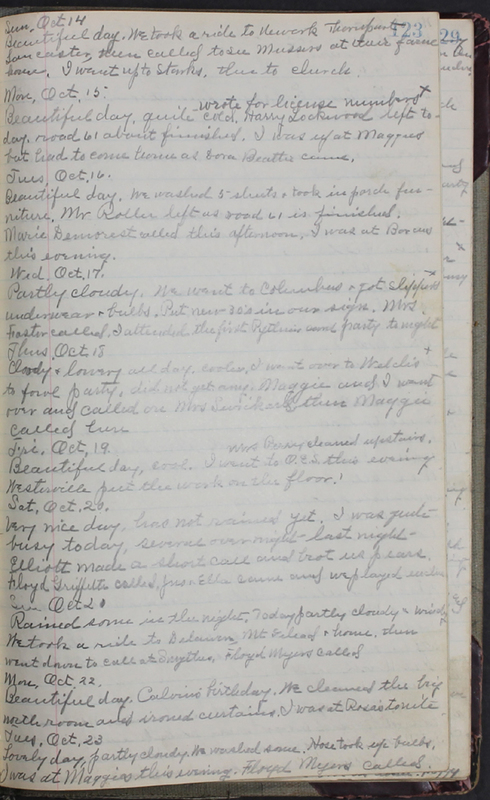 123
Sun, Oct 14
Beautiful day. We took a ride to Newark
Lancaster, then called to see Mussers at their farm
home. I went up to Starks, then to church.
Mon, Oct, 15.
wrote for license numbers +
Beautiful day, quite cold, Harry Lockwood left to-
day, road 61 about finished. I was up at Maggies
but had to come home as Dora Beattie came.
Tues, Oct, 16.
Beautiful day. We washed 5 sheets + took in porch fur-
niture, Mr Roller left as road 61 is finished.
Marie Demorest called this afternoon, I was at
this evening.
Wed, Oct, 17.
Partly cloudy. We went to Columbus + got slippers
underwear + bulbs. Put new in our sign. Mrs.
Foster called. I attended the first Pythian card party tonight
Thus, Oct, 18
Cloudy + lowery all day. cooler, I went over to +
to fowl party, did not get any. Maggie and I went
over and called on Mrs then Maggie
called here
Fri, Oct, 19.
Mrs cleaned upstairs.
Beautiful day, cool. I went to O.E.S. this evening
Westerville put the work on the floor.
Sat, Oct, 20.
Very nice day, has not rained yet. I was quite
busy today, several over night last night
Elliott made a short call and brot us pears.
Floyd Griffith called, Ella came and we played euchre
Sun Oct 21
Rained some in the night, Today partly cloudy + windy
We took a ride to Delaware, Mt Gilead + home, then
went down to call at Smythes, Floyd Myers called
Mon, Oct, 22.
Beautiful day. Calvins birthday. We cleaned the big
north room and ironed curtains. I was at Rosas tonite
Tues, Oct, 23
Lovely day, partly cloudy. We washed some. took up bulbs.
I was at Maggies this evening. Floyd Myers called.
29